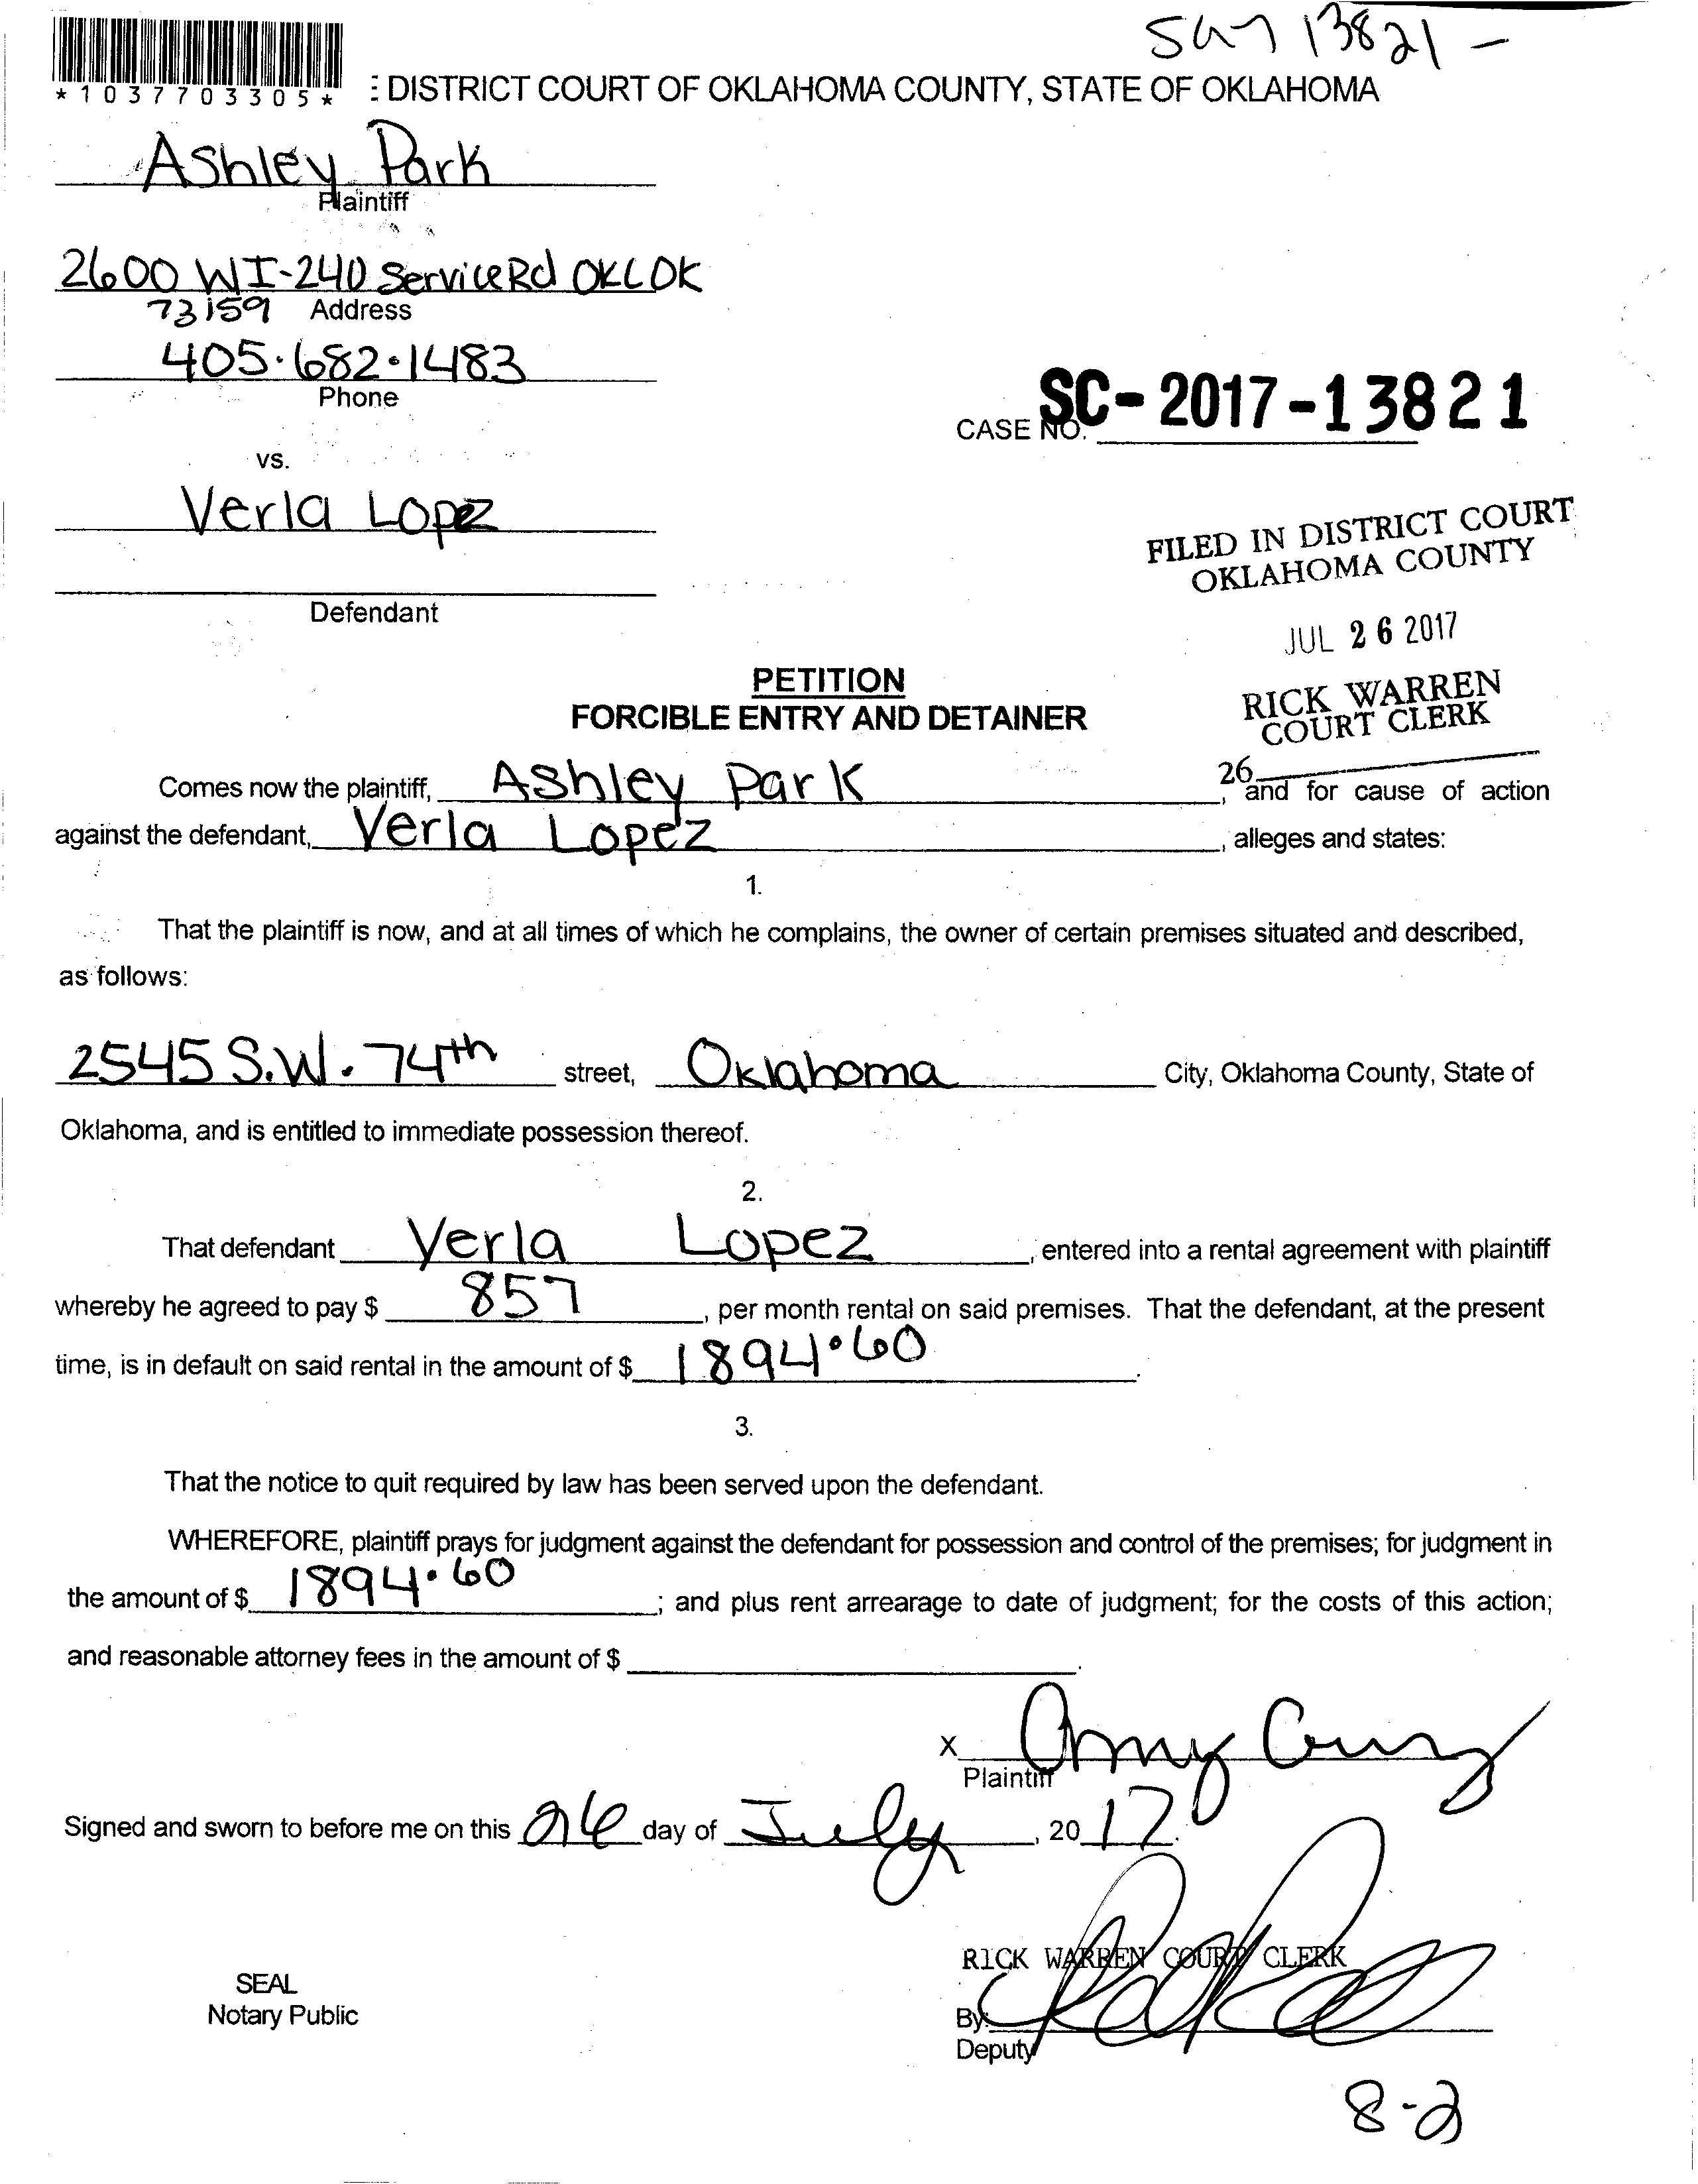 SC17 13821 -
*1037703305*
: DISTRICT COURT OF OKLAHOMA COUNTY, STATE OF OKLAHOMA
Ashley Park
Plaintiff
2600 W I-240 Service Rd OKC OK
73159 Address
405.682.1483
Phone
CASE NO. SC-2017-13821
vs.
Verla Lopez
FILED IN DISTRICT COURT
OKLAHOMA COUNTY
Defendant
JUL 26 2017
PETITION
FORCIBLE ENTRY AND DETAINER
RICK WARREN
COURT CLERK
26
Comes now the plaintiff, Ashley Park, and for cause of action
against the defendant, Verla Lopez, alleges and states:
1.
That the plaintiff is now, and at all times of which he complains, the owner of certain premises situated and described,
as follows:
2545 S.W. 74th street, Oklahoma City, Oklahoma County, State of
Oklahoma, and is entitled to immediate possession thereof.
2.
That defendant Verla Lopez, entered into a rental agreement with plaintiff
whereby he agreed to pay $ 857, per month rental on said premises. That the defendant, at the present
time, is in default on said rental in the amount of $ 1894.60.
3.
That the notice to quit required by law has been served upon the defendant.
WHEREFORE, plaintiff prays for judgment against the defendant for possession and control of the premises; for judgment in
the amount of $ 1894.60; and plus rent arrearage to date of judgment; for the costs of this action;
and reasonable attorney fees in the amount of $ .
X Amy Cruz
Plaintiff
Signed and sworn to before me on this 26 day of July, 2017.
RICK WARREN COURT CLERK
SEAL
Notary Public
By:
Deputy
8-2